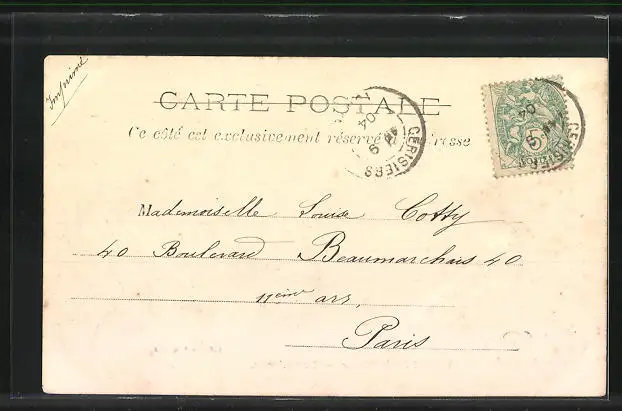 Imprimé
CARTE POSTALE
Ce côté est exclusivement réservé à l'adresse
CERISIERS
04
CERISIERS
04
Mademoiselle Louise Cotty
40 Boulevard Beaumarchais 40
11ème arr,
Paris